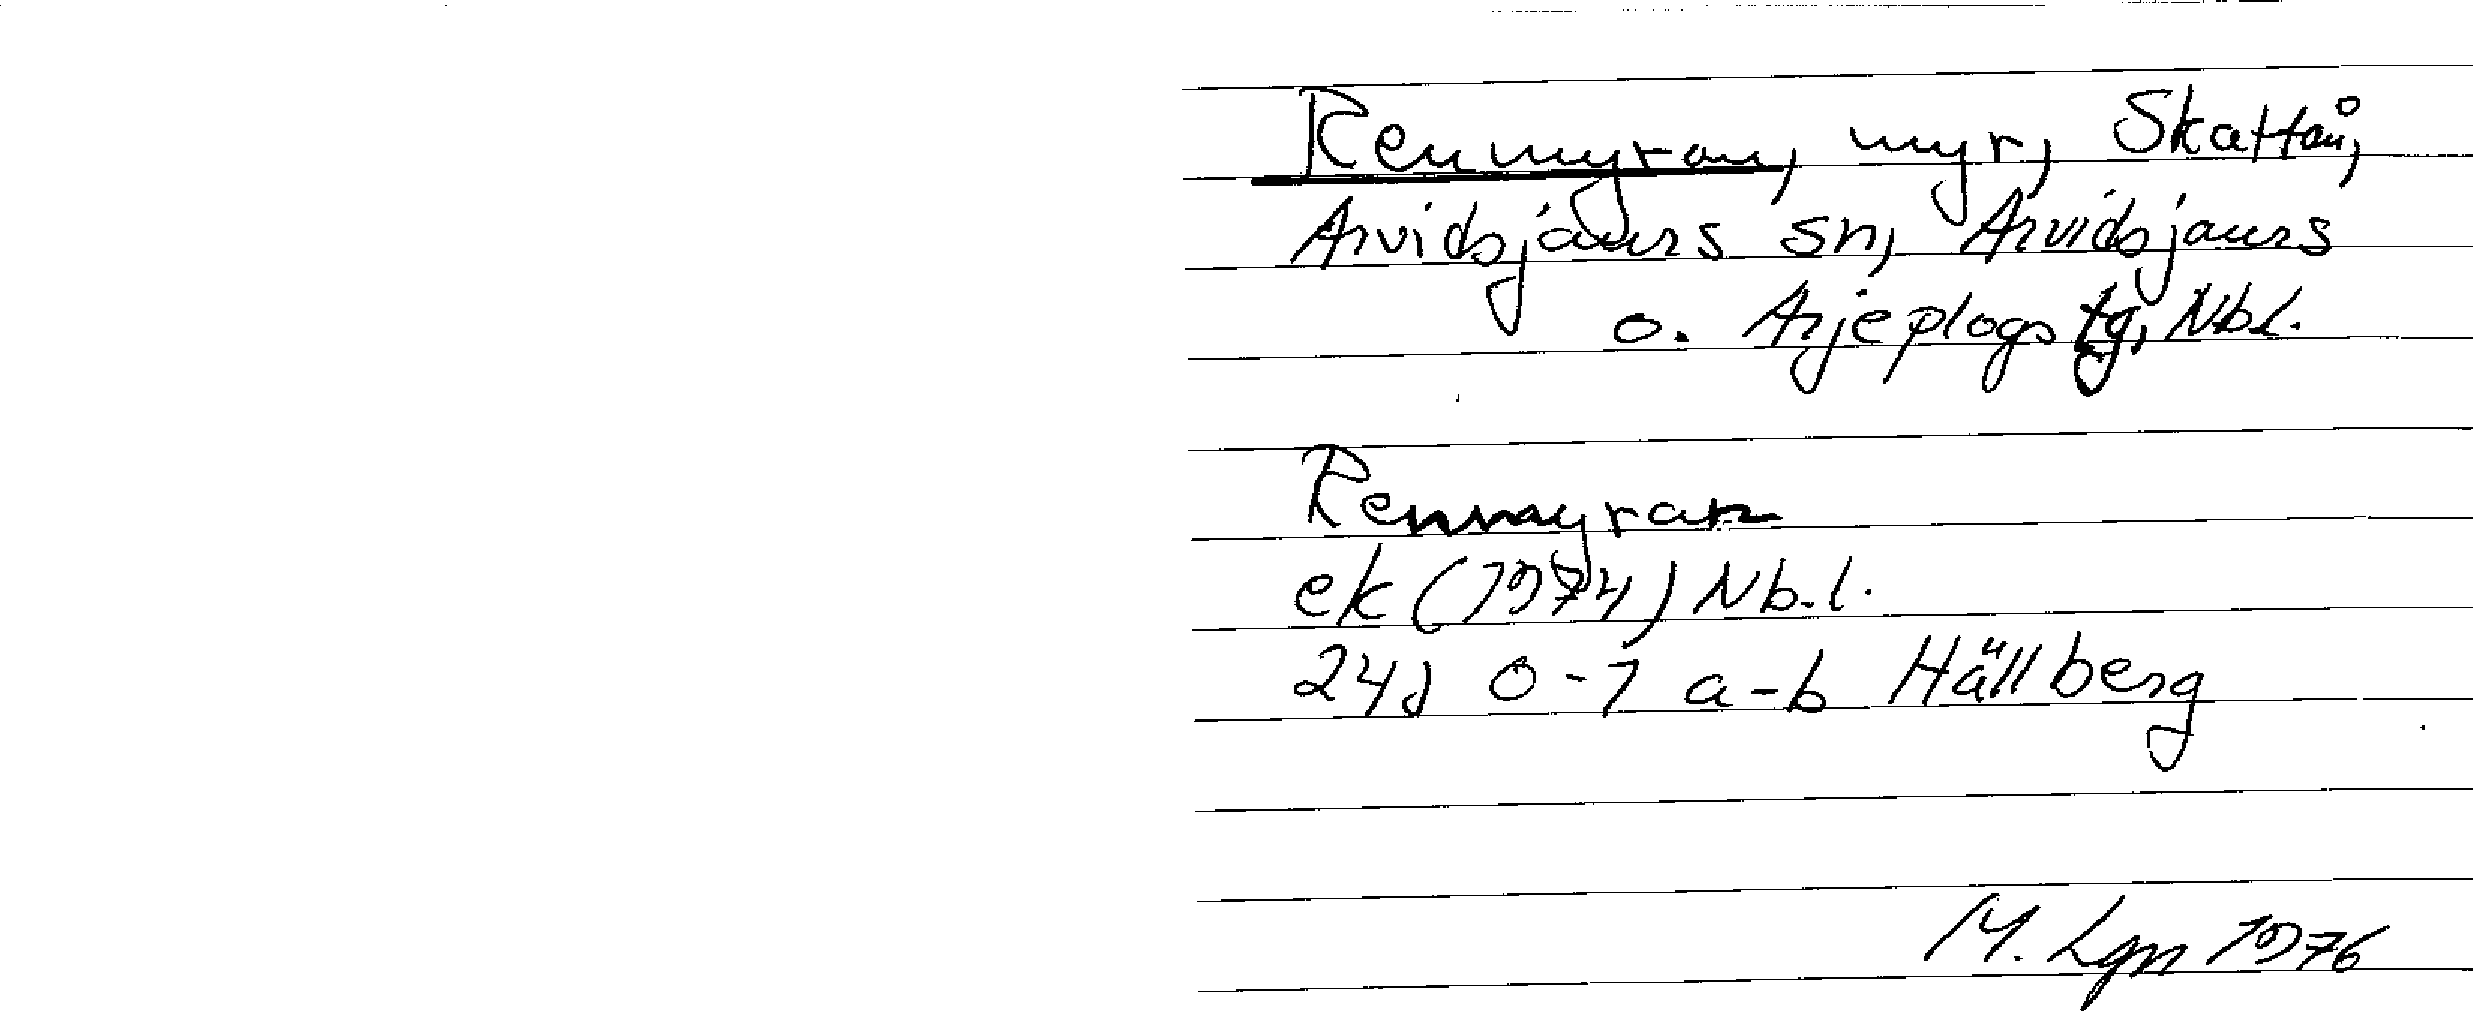 Renmyran, myr, Skattån,
Arvidsjaurs sn, Arvidsjaurs
o. Arjeplogs tg, Nb.l.
Renmyran
ek (1974) Nb.l.
24J 0-1 a-b Hällberg
M. Lgn 1976